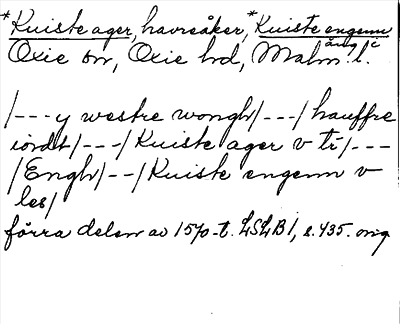 *Kuiste ager, havreåker, *Kuiste engenn äng i
Oxie sn, Oxie hd, Malm. l.
/---y westre wongh/---/hauffre
iordt/---/Kuiste ager v tr/---
/Engh/--/Kuiste engenn v
les/
förra delen av 1570-t. LSLB I, s. 435. orig